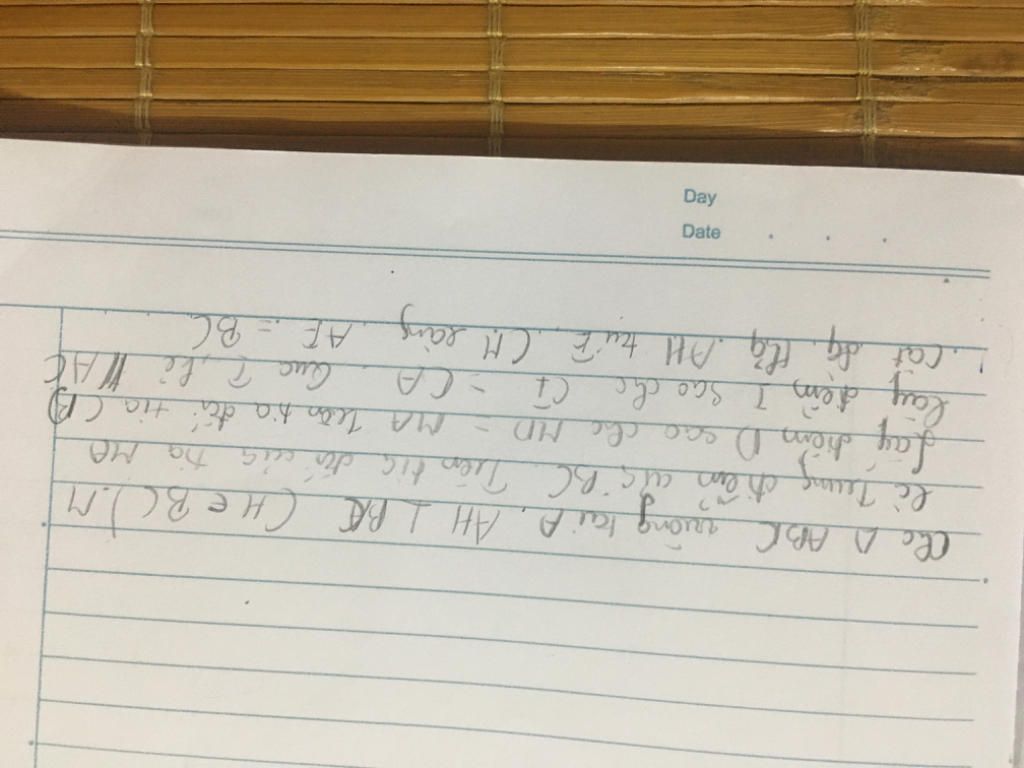 Day
Date
Cho Δ ABC vuông tại A, AH ⊥ BC (H ∈ BC). M
là Trung điểm của BC. Trên tia đối của tia MA
Lấy điểm D sao cho MD = MA trên tia đối tia CD
Lấy điểm I sao cho CI = CA. Qua I, kẻ // AC
cắt đg thg AH tại E. CM rằng AE = BC